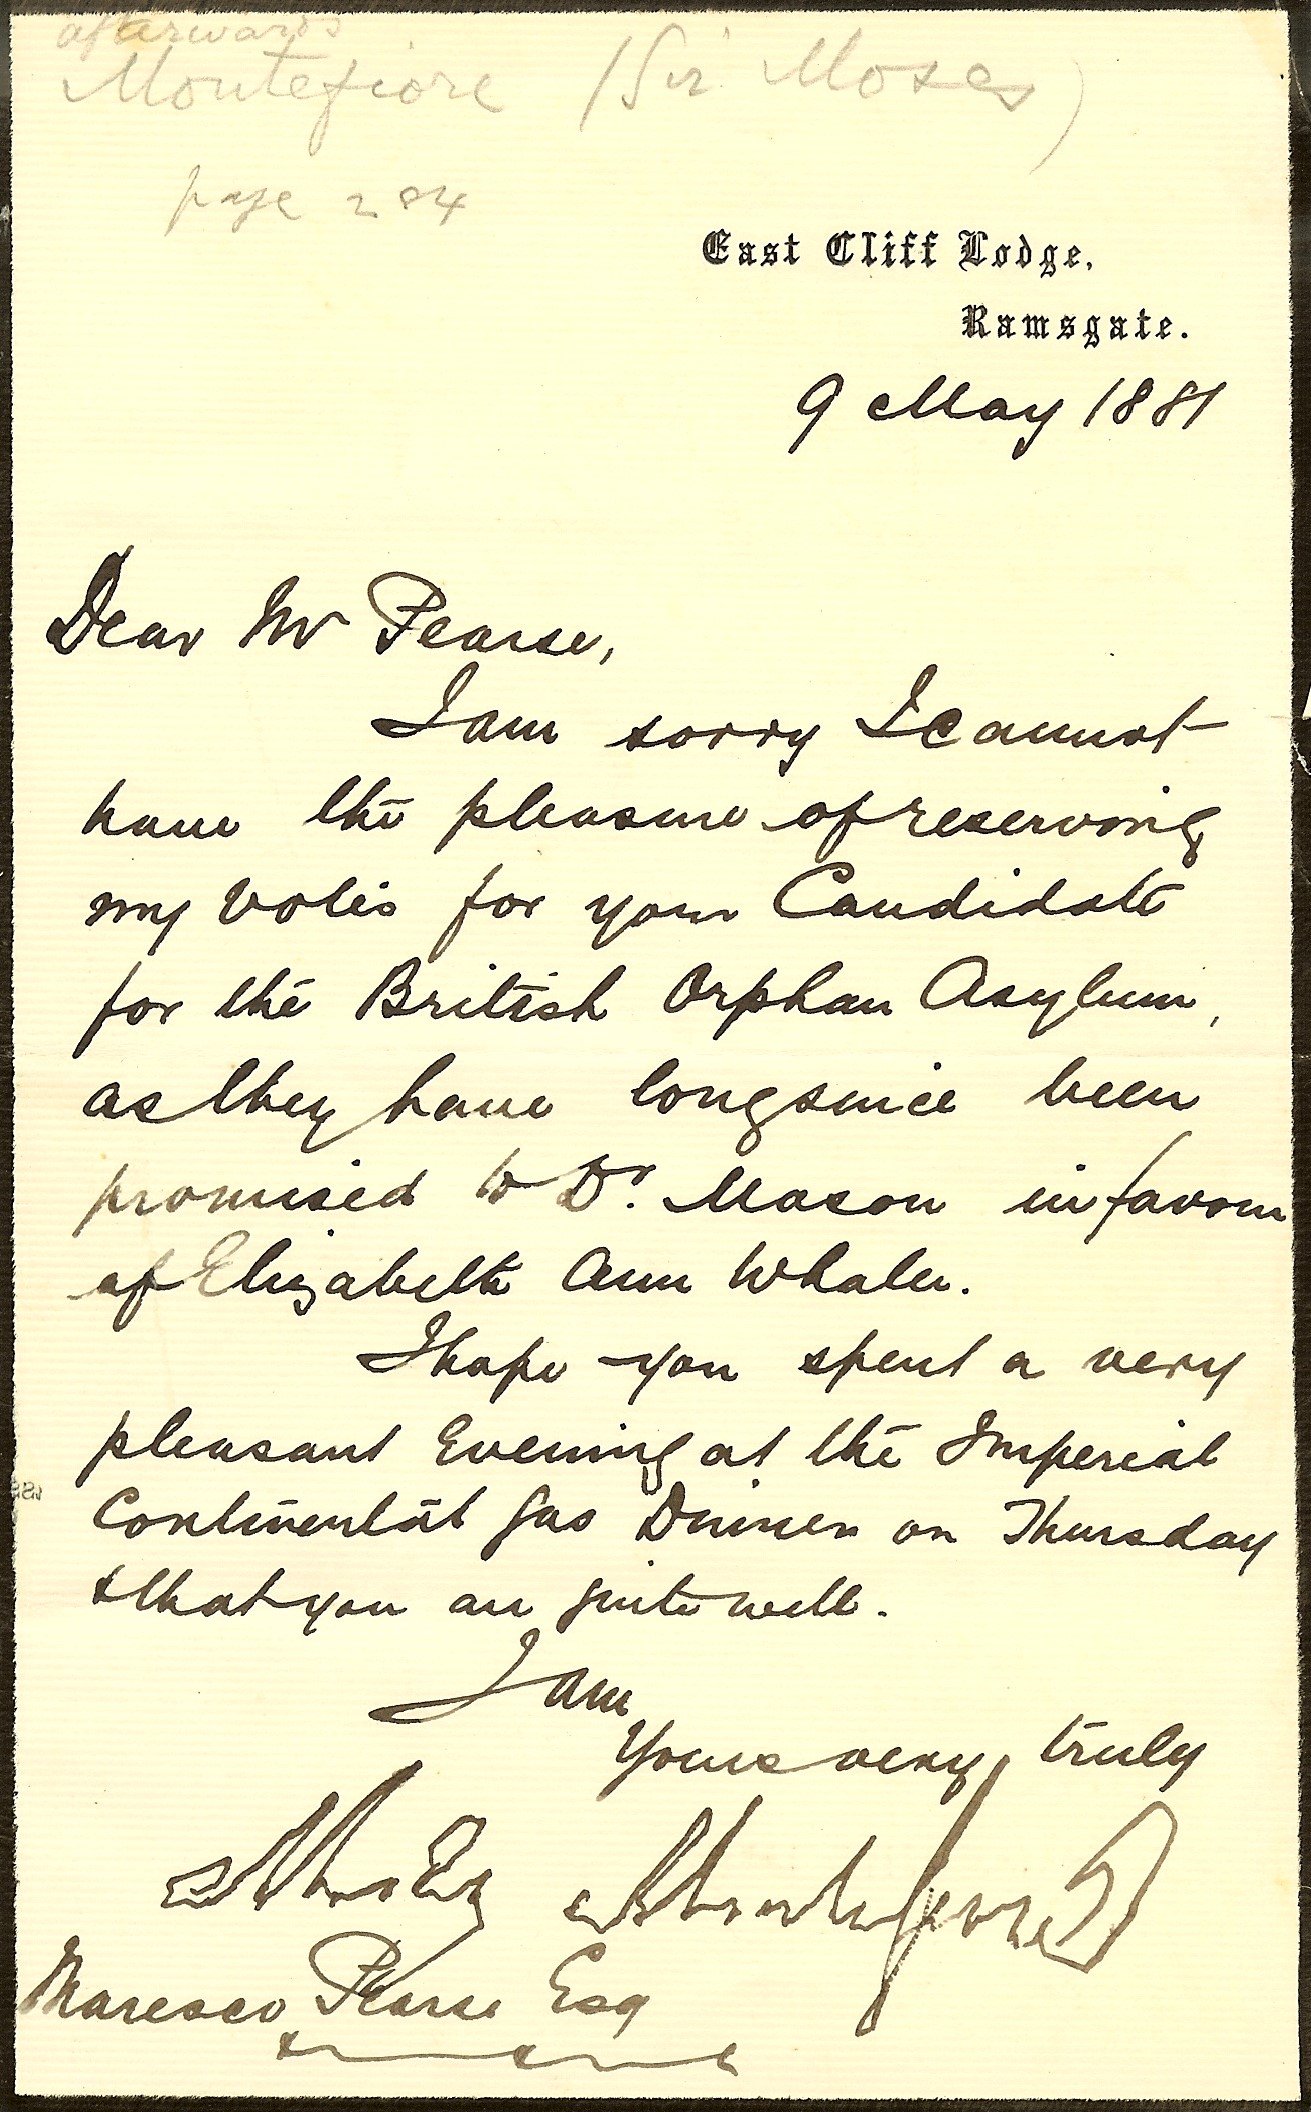 afterwards
Montefiore (Sir Moses)
page 284
East Cliff Lodge,
Ramsgate.
9 May 1881
Dear Mr Pearse,
I am sorry I cannot
have the pleasure of reserving
my votes for your Candidate
for the British Orphan Asylum,
as they have long since been
promised to Dr. Mason in favour
of Elizabeth Ann Whaler.
I hope you spent a very
pleasant Evening at the Imperial
Continental Gas Dinner on Thursday
& that you are quite well.
I am
Yours very truly
Moses Montefiore
Maresco Pearse Esq